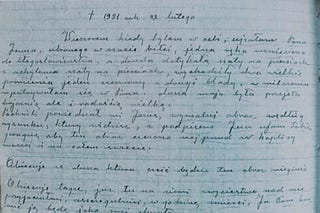 † 1931 rok. 22 lutego
Wieczorem kiedy byłam w celi, ujrzałam Pana
Jezusa, ubranego w szacie białej, jedna ręka wzniesiona
do błogosławieństwa, a druga dotykała szaty na piersiach
z uchylenia szaty na piersiach, wychodziły dwa wielkie
promienie jeden czerwony, a drugi blady, w milczeniu
wpatrywałam się w Pana, dusza moja była przejęta
bojaźnią ale i radością wielką.
Po chwili powiedział mi Jezus, wymaluj obraz według
rysunku, który widzisz, z podpisem Jezu ufam Tobie
pragnę, aby ten obraz czczono najpierw w kaplicy
waszej i na całym świecie.
Obiecuję, że dusza, która czcić będzie ten obraz nie zginie
Obiecuję także, już tu na ziemi zwycięstwo nad nie
przyjaciółmi, a szczególnie w godzinę śmierci, Ja Sam bro
nić ją będę jako swej chwały